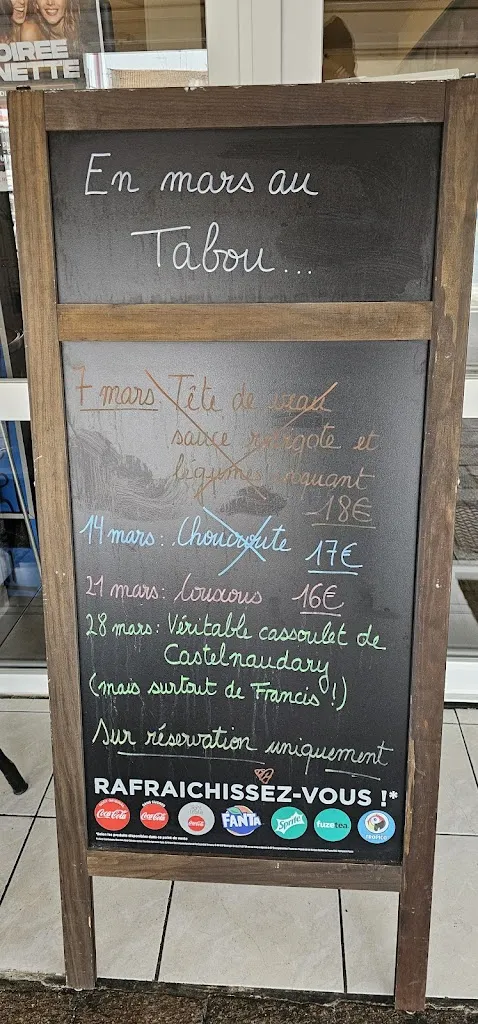 OIREE
NETTE
En mars au
Tabou...
7 mars Tête de veau
sauce ravigote et
légumes croquant
18€
14 mars : Choucroute 17€
21 mars : Couscous 16€
28 mars : Véritable cassoulet de
Castelnaudary
(mais surtout de Francis !)
Sur réservation uniquement
RAFRAICHISSEZ-VOUS !*
Coca-Cola
Coca-Cola
Coca-Cola
FANTA
Sprite
fuzetea
TROPICO
*Selon les produits disponibles dans ce point de vente